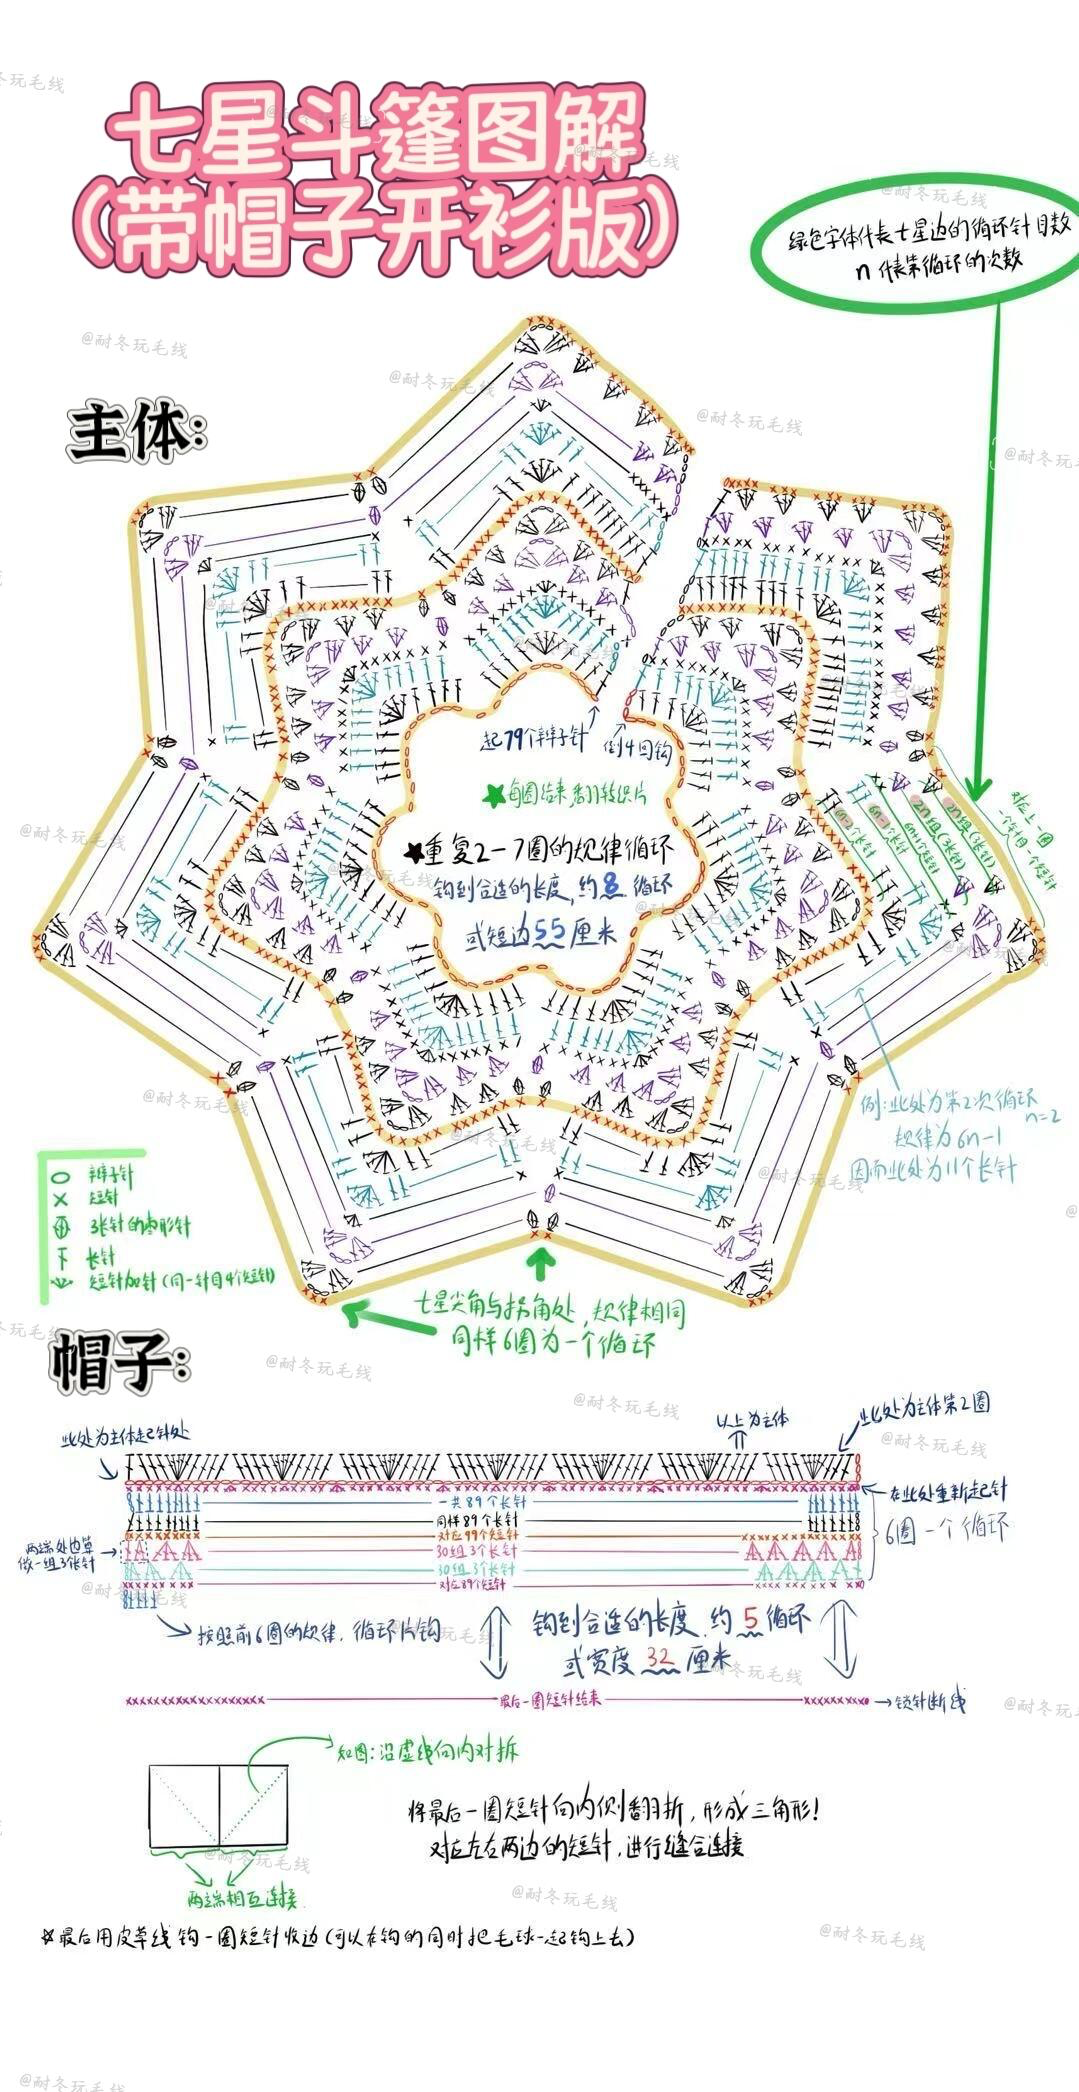 七星斗篷图解
（带帽子开衫版）
绿色字体代表七星边的循环针目数
n 代表第循环的次数
主体：
起79个辫子针
倒4回钩
★每圈结束翻转织片
★重复2-7圈的规律循环
钩到合适的长度，约8循环
或短边55厘米
6n-2个长针
6n-1个长针
6n+1个短针
2n组(3长针)
2n组(3长针)
对应上一圈
一个针目一个短针
例：此处为第2次循环
n=2
规律为6n-1
因而此处为11个长针
辫子针
短针
3长针的枣形针
长针
短针加针(同一针目4个短针)
七星尖角与拐角处，规律相同
同样6圈为一个循环
帽子：
此处为主体起针处
以上为主体
此处为主体第2圈
在此处重新起针
一共89个长针
同样89个长针
对应99个短针
30组3个长针
30组3个长针
对应89个短针
6圈一个循环
两端处也算
做一组3长针
按照前6圈的规律，循环片钩
钩到合适的长度，约5循环
或宽度32厘米
最后一圈短针结束
锁针断线
如图：沿虚线向内对折
将最后一圈短针向内侧翻折，形成三角形！
对应左右两边的短针，进行缝合连接
两端相互连接
☆最后用皮草线钩一圈短针收边(可以在钩的同时把毛球一起钩上去)
@耐冬玩毛线